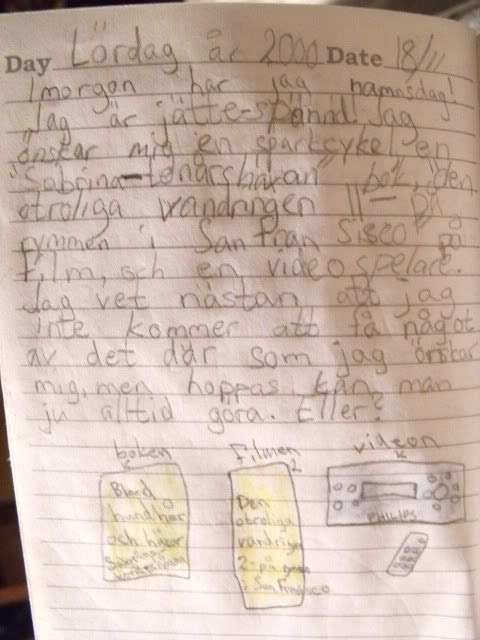 Day Lördag år 2000 Date 18/11
Imorgon har jag namnsdag!
Jag är jätte-spännd! Jag
önskar mig en sparkcykel, en
"Sabrina-tonårshäxan" bok, "den
otroliga vandringen II - på
rymmen i San Fran Sisco" på
film, och en videospelare.
Jag vet nästan att jag
inte kommer att få något
av det där som jag önskar
mig, men hoppas kan man
ju alltid göra. Eller?
boken
filmen
videon
Bland
hundhår
och häxor
Sabrina
Den
otroliga
vandringen
2-på
i San Francisco
PHILIPS